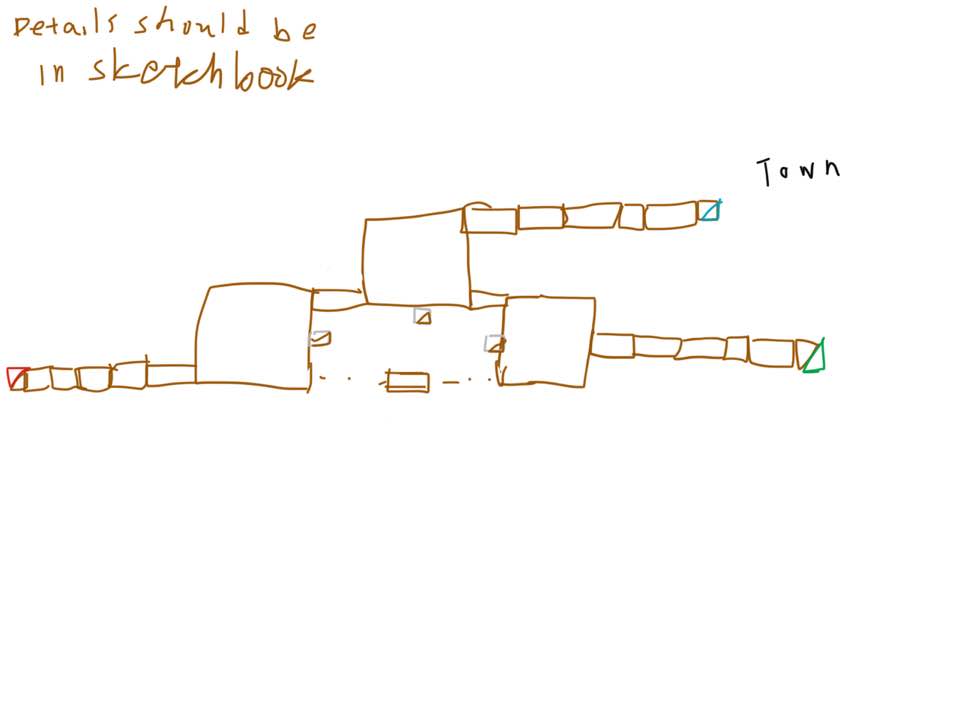 Details should be
in sketchbook
Town